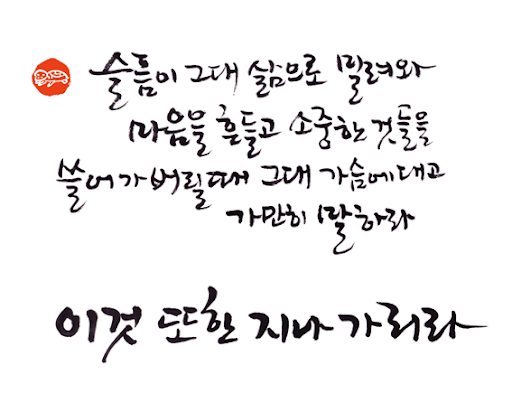 슬픔이 그대 삶으로 밀려와
마음을 흔들고 소중한 것들을
쓸어가버릴때 그대 가슴에대고
가만히 말하라
이것 또한 지나가리라